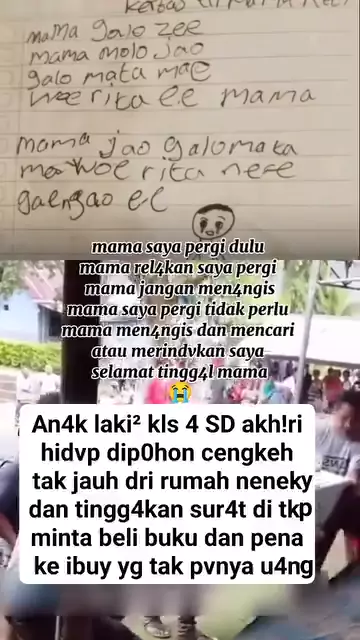 kertas
mama galo zee
mama molo jao
galo mata mae
woe rita e.e mama
mama jao galo mata
mae woe rita nee
gaengao e-e
mama saya pergi dulu
mama rel4kan saya pergi
mama jangan men4ngis
mama saya pergi tidak perlu
mama men4ngis dan mencari
atau merindvkan saya
selamat tingg4l mama
An4k laki² kls 4 SD akh!ri
hidvp dip0hon cengkeh
tak jauh dri rumah neneky
dan tingg4kan sur4t di tkp
minta beli buku dan pena
ke ibuy yg tak pvnya u4ng